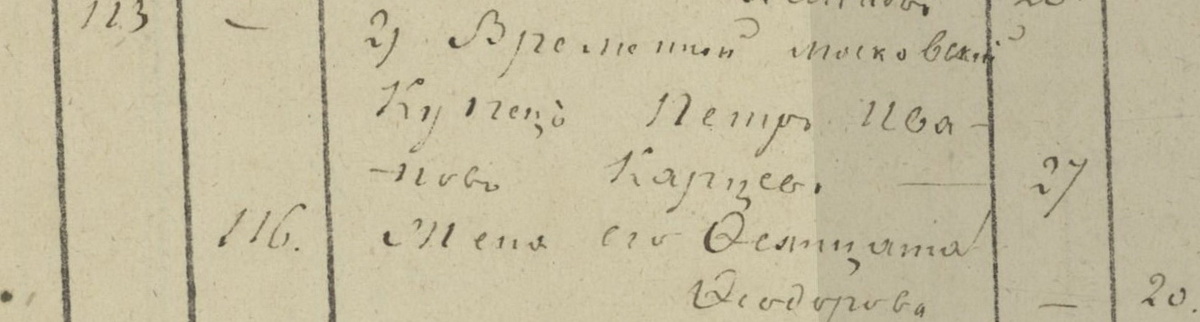 113 — 2) Временный московский
Купецъ Петръ Ива-
-новъ Карцевъ. — 27
116. Жена его Ѳеклицата
Ѳеодорова — 20.